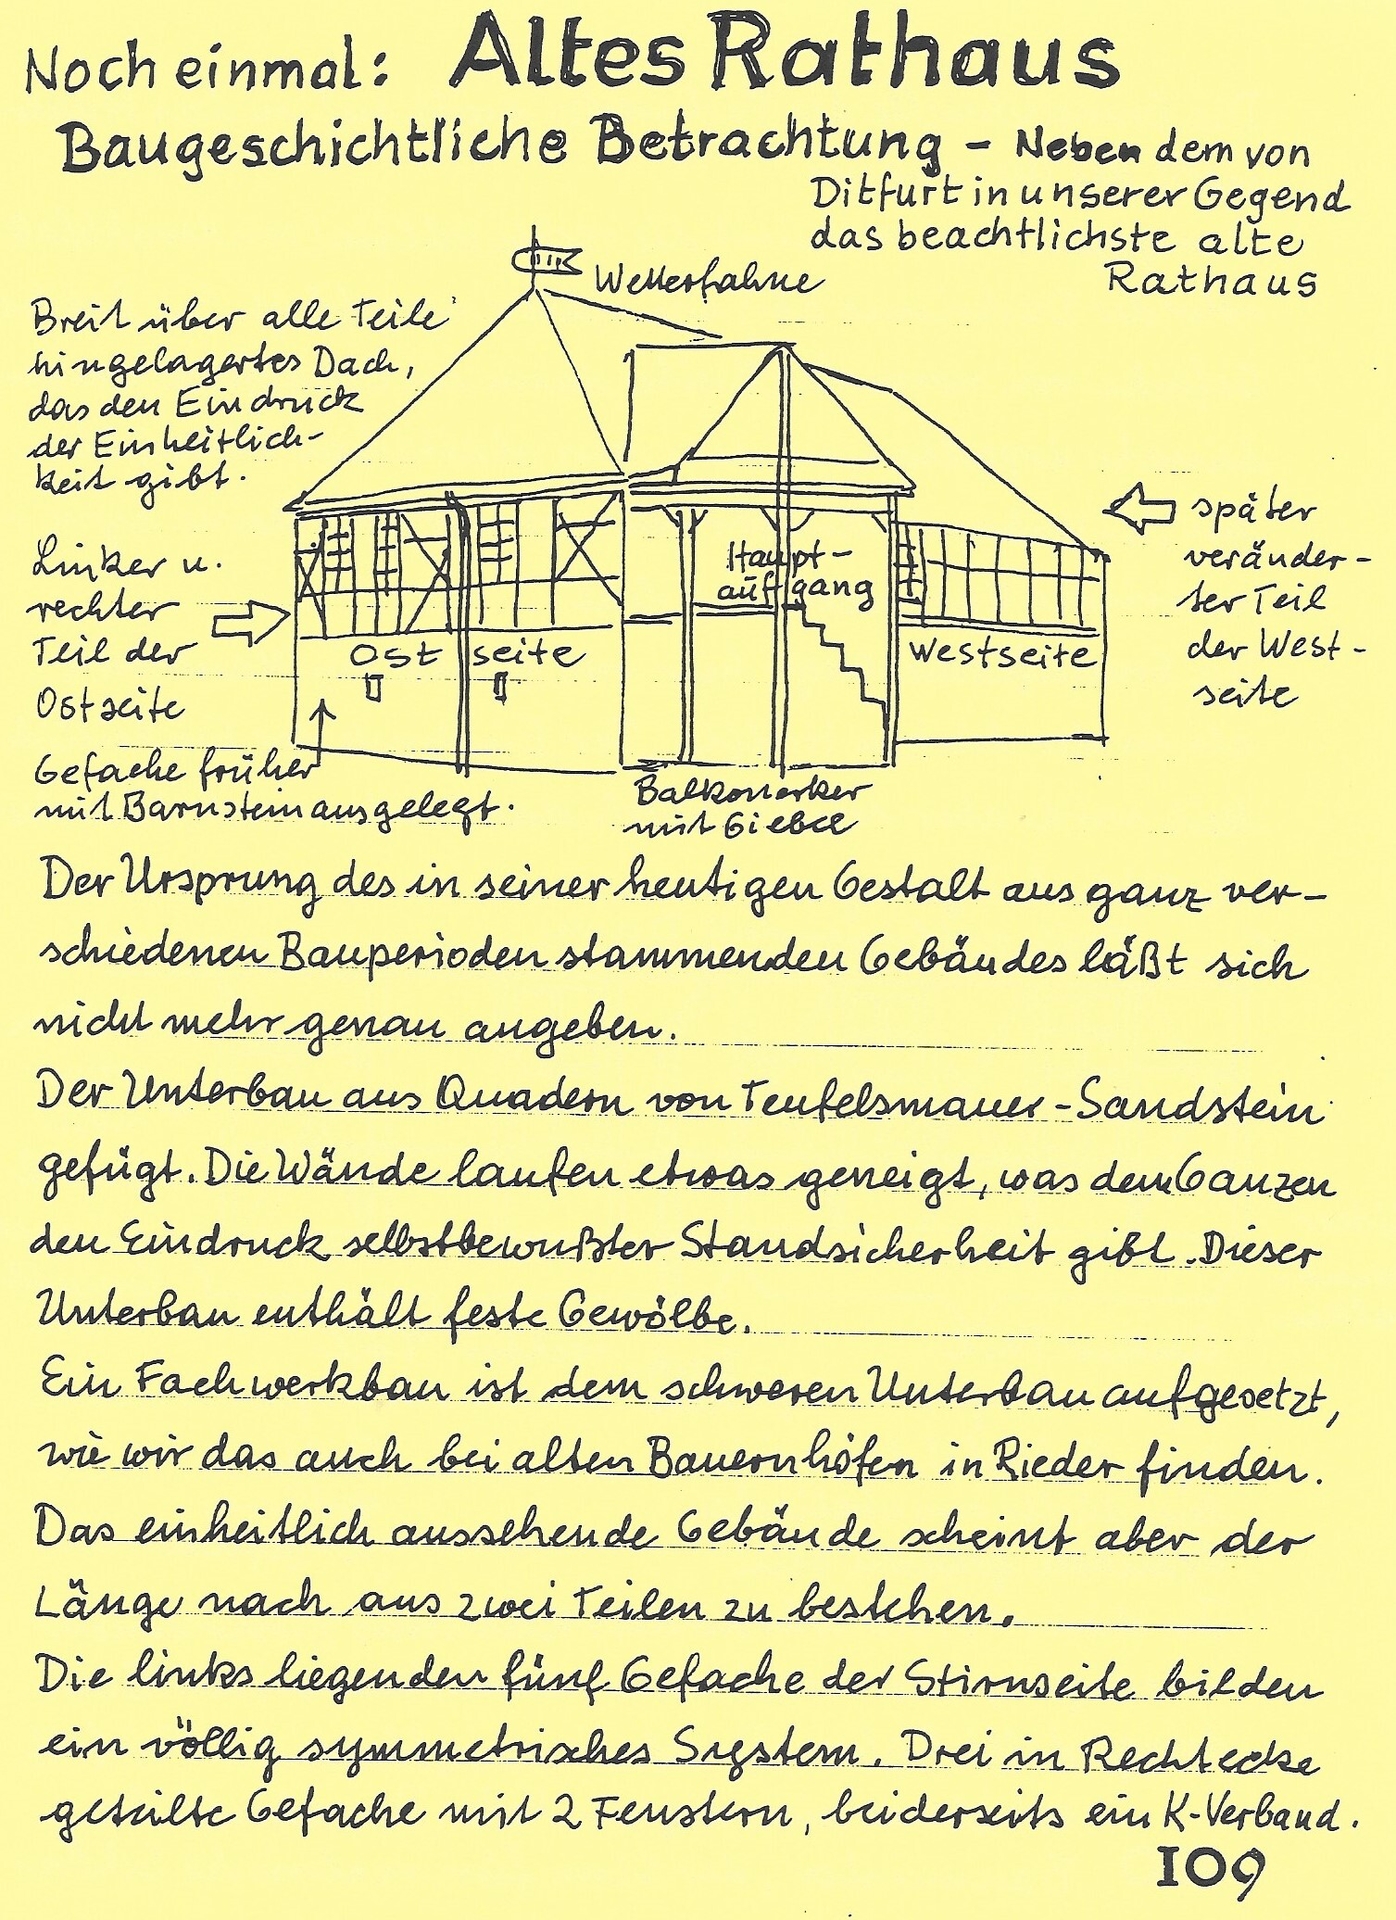 Noch einmal: Altes Rathaus
Baugeschichtliche Betrachtung - Neben dem von
Ditfurt in unserer Gegend
das beachtlichste alte
Rathaus
Wetterfahne
Breit über alle Teile
hingelagertes Dach,
das den Eindruck
der Einheitlich-
keit gibt.
Linker u.
rechter
Teil der
Ostseite
Gefache früher
mit Barnstein ausgelegt.
Haupt-
aufgang
Ostseite
Westseite
Balkonerker
mit Giebel
später
veränder-
ter Teil
der West-
seite
Der Ursprung des in seiner heutigen Gestalt aus ganz ver-
schiedenen Bauperioden stammenden Gebäudes läßt sich
nicht mehr genau angeben.
Der Unterbau aus Quadern von Teufelsmauer-Sandstein
gefügt. Die Wände laufen etwas geneigt, was dem Ganzen
den Eindruck selbstbewußter Standsicherheit gibt. Dieser
Unterbau enthält feste Gewölbe.
Ein Fachwerkbau ist dem schweren Unterbau aufgesetzt,
wie wir das auch bei alten Bauernhöfen in Rieder finden.
Das einheitlich aussehende Gebäude scheint aber der
Länge nach aus zwei Teilen zu bestehen.
Die links liegenden fünf Gefache der Stirnseite bilden
ein völlig symmetrisches System. Drei in Rechtecke
geteilte Gefache mit 2 Fenstern, beiderseits ein K-Verband.
109